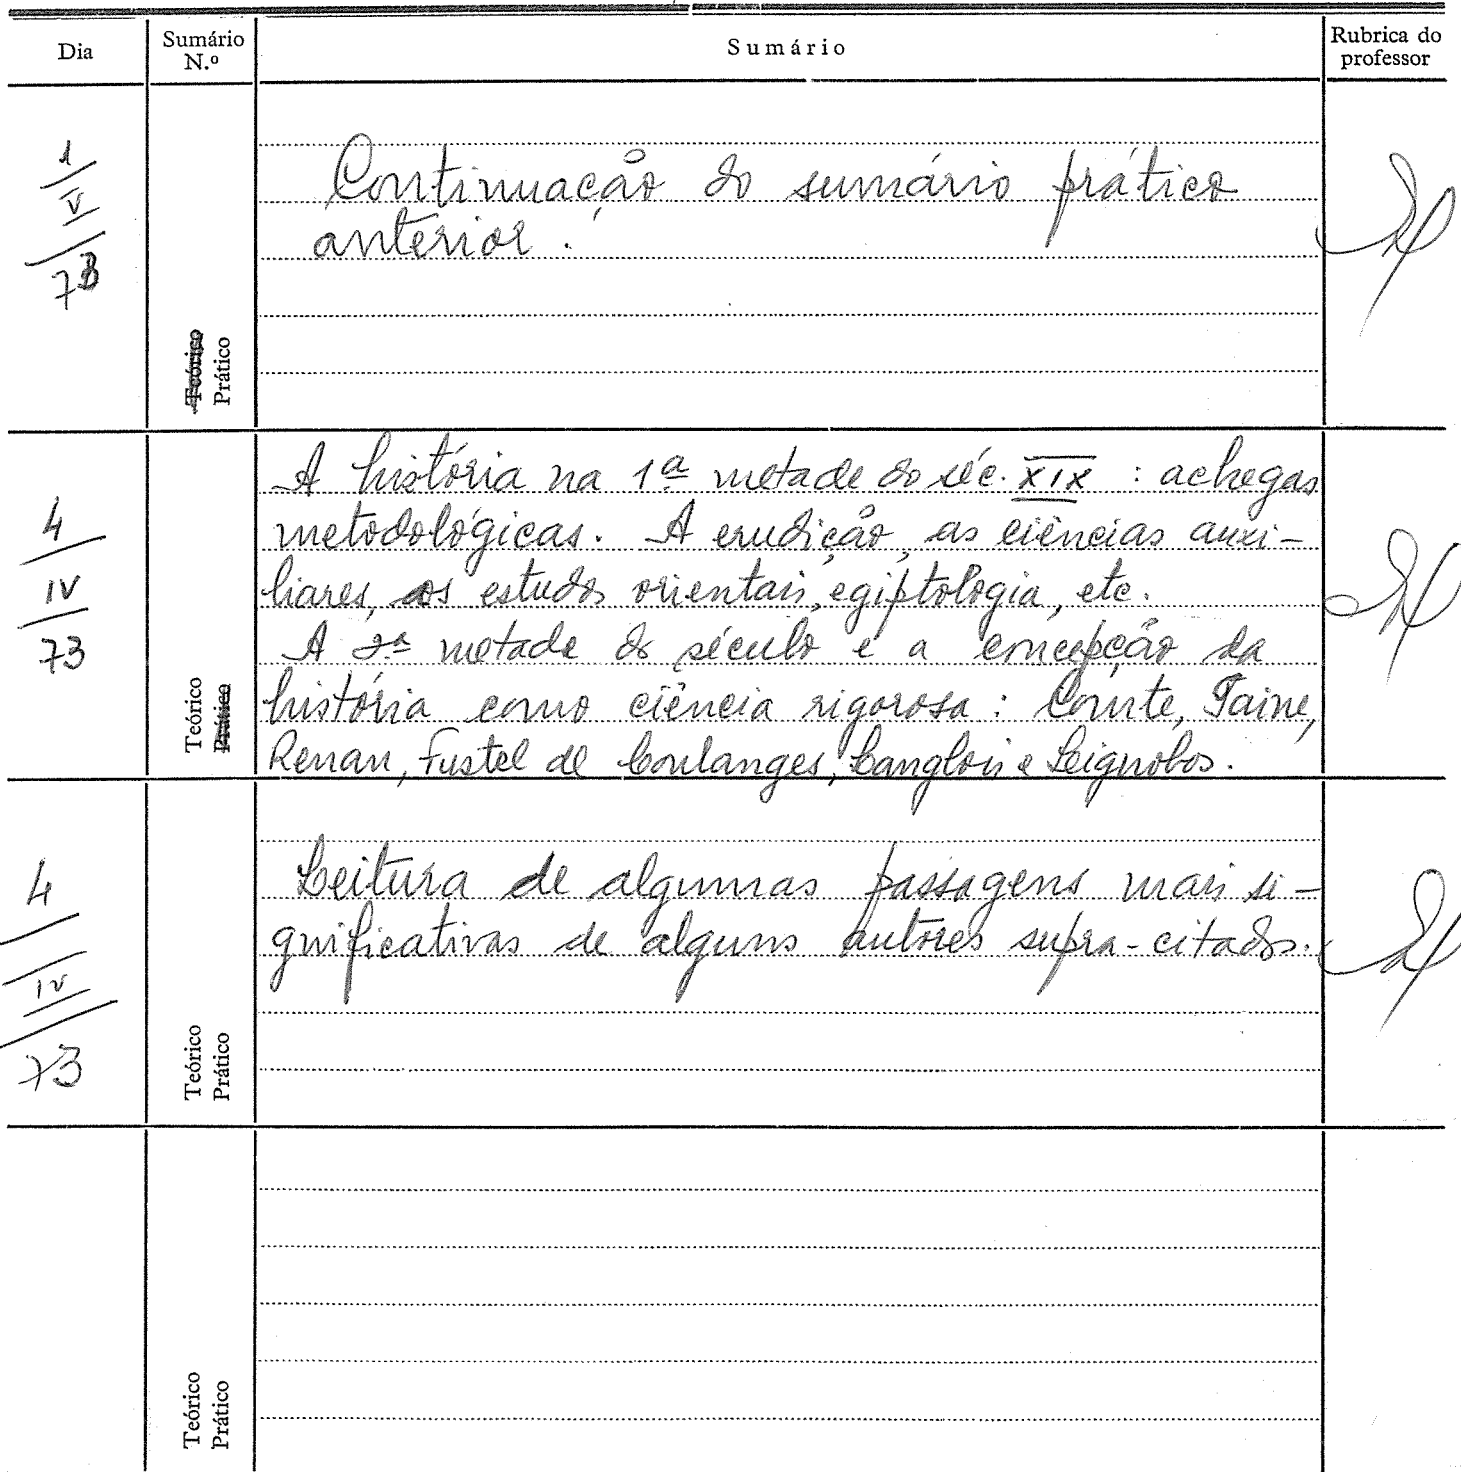 Dia
Sumário
N.º
Sumário
Rubrica do
professor
1
V
73
Teórico
Prático
Continuação do sumário prático
anterior.
4
IV
73
Teórico
Prático
A história na 1ª metade do séc. XIX : achegas
metodológicas. A erudição, as ciências auxi-
liares, os estudos orientais, egiptologia, etc.
A 2ª metade do século e a concepção da
história como ciência rigorosa : Comte, Taine,
Renan, Fustel de Coulanges, Langlois e Seignobos.
4
IV
73
Teórico
Prático
Leitura de algumas passagens mais si-
gnificativas de alguns autores supra-citados.
Teórico
Prático